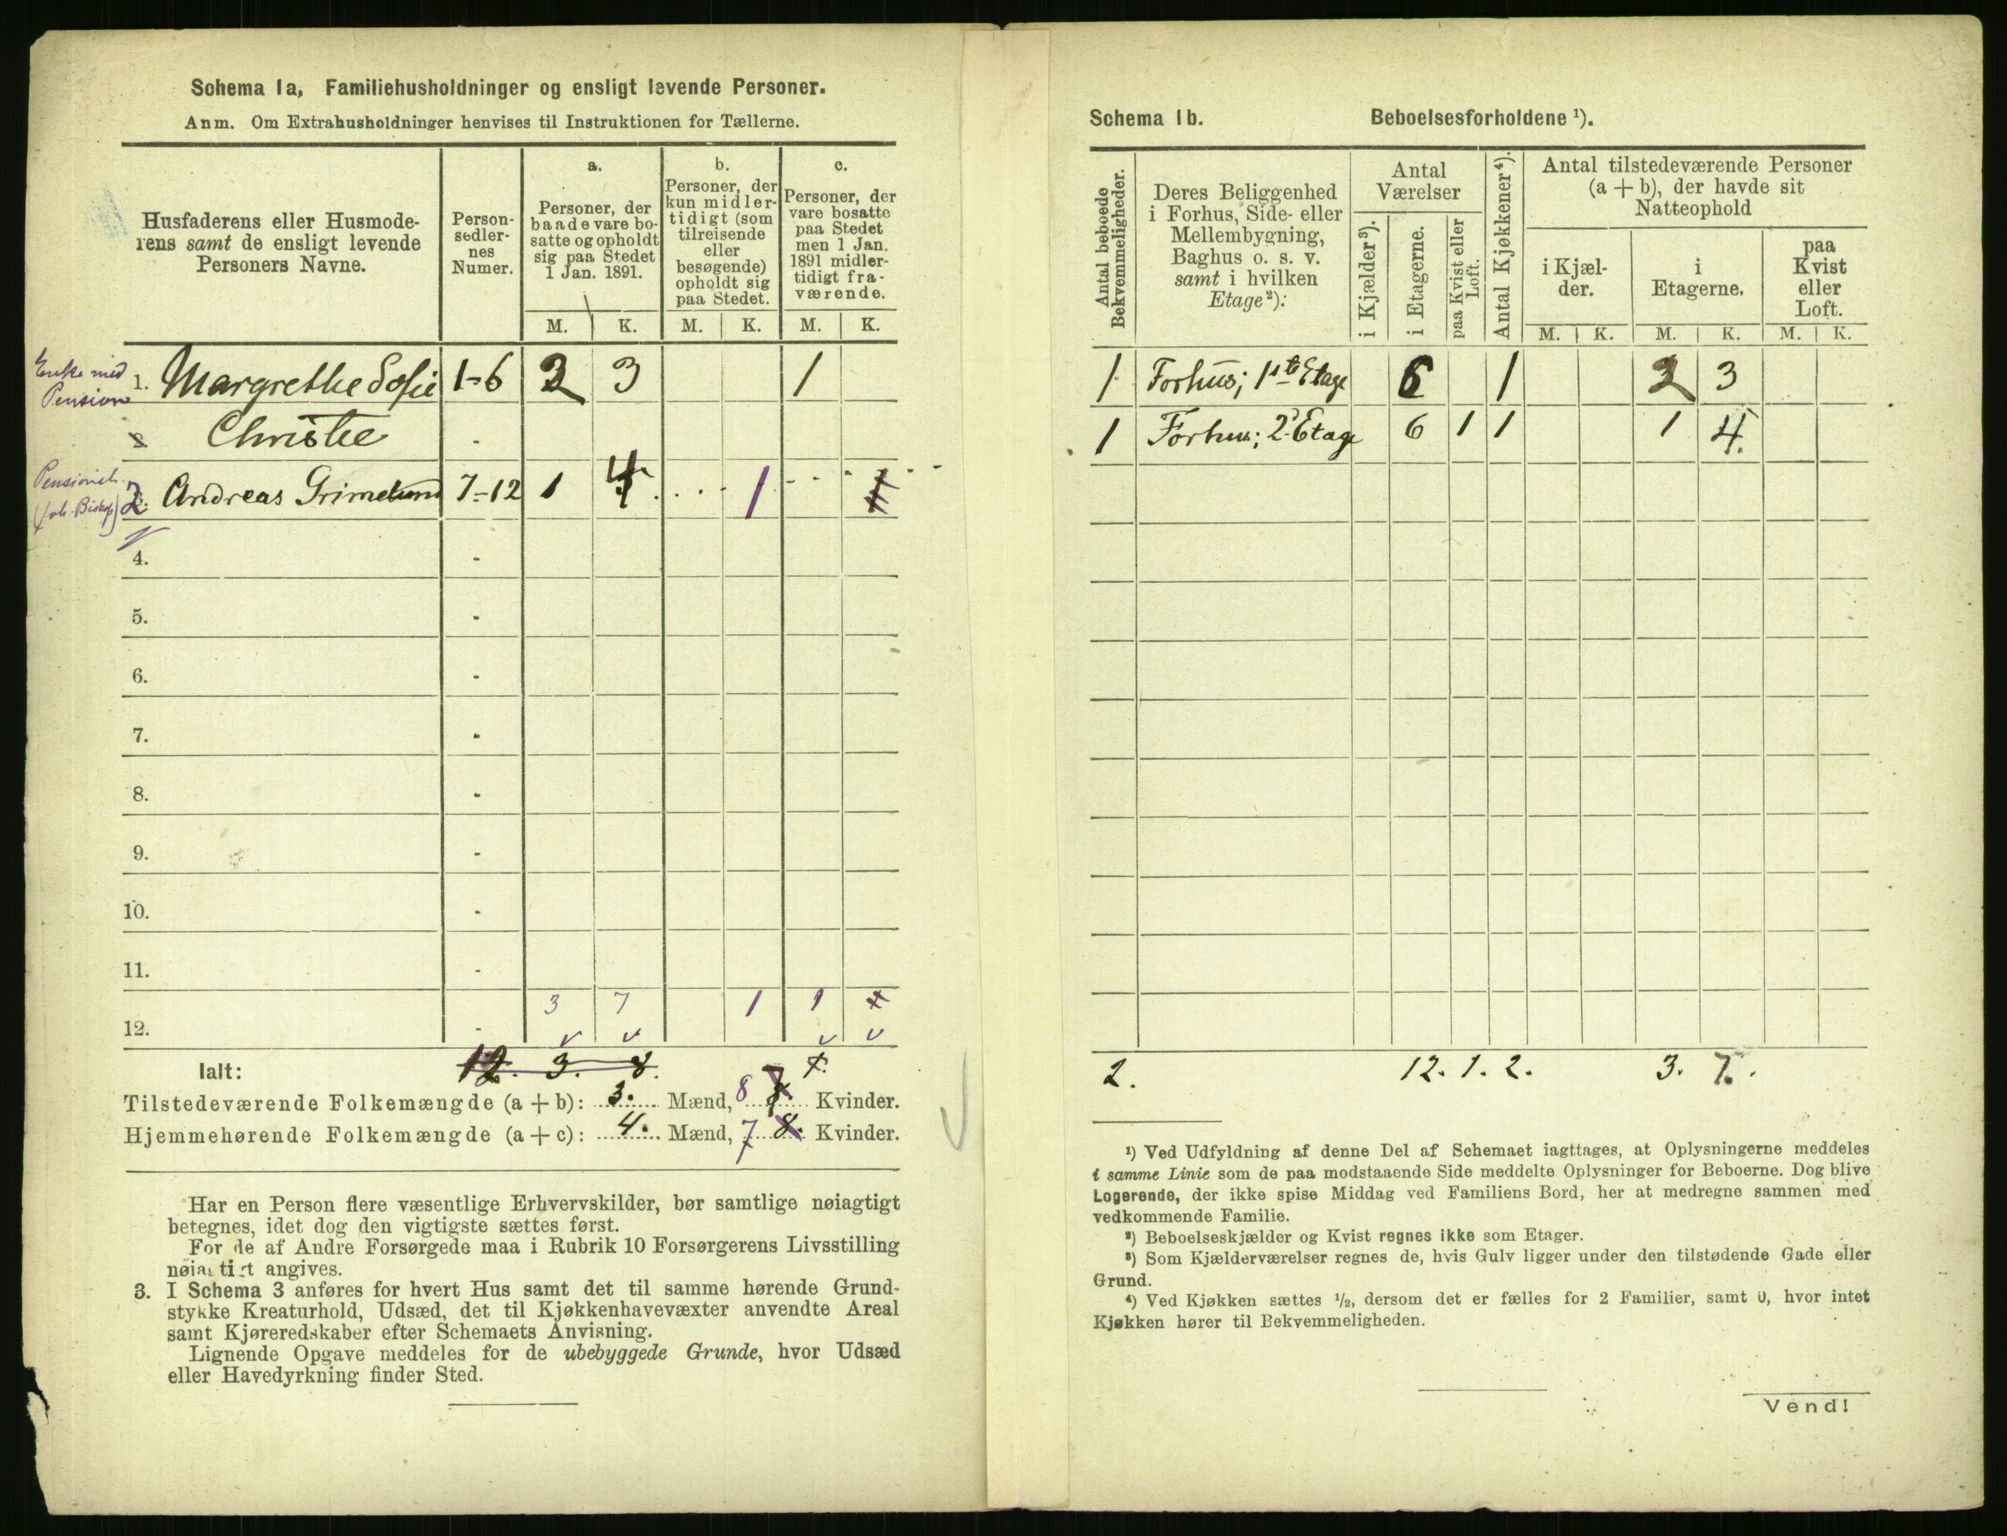 Schema 1a, Familiehusholdninger og ensligt levende Personer.
Anm. Om Extrahusholdninger henvises til Instruktionen for Tællerne.
Husfaderens eller Husmode-
rens samt de ensligt levende
Personers Navne.
Person-
sedler-
nes
Numer.
a.
Personer, der
baade vare bo-
satte og opholdt
sig paa Stedet
1 Jan. 1891.
b.
Personer, der
kun midler-
tidigt (som
tilreisende
eller
besøgende)
opholdt sig
paa Stedet.
c.
Personer, der
vare bosatte
paa Stedet
men 1 Jan.
1891 midler-
tidigt fra-
værende.
M. K. M. K. M. K.
Enke med
Pension
1. Margrethe Sofie 1-6 2 3 1
Christie -
Pensionist
2. Andreas Grimelund 7-12 1 4 1
4. -
5. -
6. -
7. -
8. -
9. -
10. -
11. -
3 7 1 1
12. -
Ialt: 12. 3. 8.
Tilstedeværende Folkemængde (a + b): 3. Mænd, 8 Kvinder.
Hjemmehørende Folkemængde (a + c): 4. Mænd, 7 8. Kvinder.
Har en Person flere væsentlige Erhvervskilder, bør samtlige nøiagtigt
betegnes, idet dog den vigtigste sættes først.
For de af Andre Forsørgede maa i Rubrik 10 Forsørgerens Livsstilling
angives.
3. I Schema 3 anføres for hvert Hus samt det til samme hørende Grund-
stykke Kreaturhold, Udsæd, det til Kjøkkenhavevæxter anvendte Areal
samt Kjøreredskaber efter Schemaets Anvisning.
Lignende Opgave meddeles for de ubebyggede Grunde, hvor Udsæd
eller Havedyrkning finder Sted.
Schema 1b. Beboelsesforholdene ¹).
Antal beboede
Bekvemmeligheder.
Deres Beliggenhed
i Forhus, Side- eller
Mellembygning,
Baghus o. s. v.
samt i hvilken
Etage ²):
Antal
Værelser
i Kjælder ³).
i Etagerne.
paa Kvist eller
Loft.
Antal Kjøkkener ⁴).
Antal tilstedeværende Personer
(a + b), der havde sit
Natteophold
i Kjæl-
der.
i
Etagerne.
paa
Kvist
eller
Loft.
M. K. M. K. M. K.
1 Forhus; 1ste Etage 6 1 2 3
1 Forhus; 2. Etage 6 1 1 1 4.
2. 12. 1. 2. 3. 7.
¹) Ved Udfyldning af denne Del af Schemaet iagttages, at Oplysningerne meddeles
i samme Linie som de paa modstaaende Side meddelte Oplysninger for Beboerne. Dog blive
Logerende, der ikke spise Middag ved Familiens Bord, her at medregne sammen med
vedkommende Familie.
²) Beboelseskjælder og Kvist regnes ikke som Etager.
³) Som Kjælderværelser regnes de, hvis Gulv ligger under den tilstødende Gade eller
Grund.
⁴) Ved Kjøkken sættes ½, dersom det er fælles for 2 Familier, samt 0, hvor intet
Kjøkken hører til Bekvemmeligheden.
Vend!